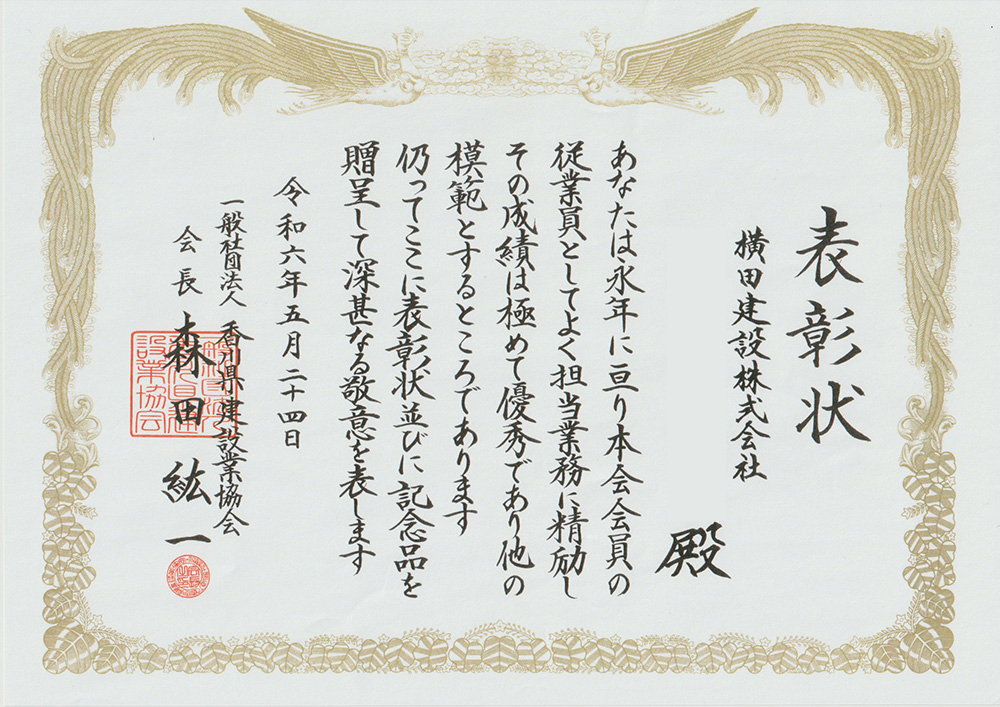 表彰状
横田建設株式会社
殿
あなたは永年に亘り本会会員の
従業員としてよく担当業務に精励し
その成績は極めて優秀であり他の
模範とするところであります
仍ってここに表彰状並びに記念品を
贈呈して深甚なる敬意を表します
令和六年五月二十四日
一般社団法人 香川県建設業協会
会長 森田紘一